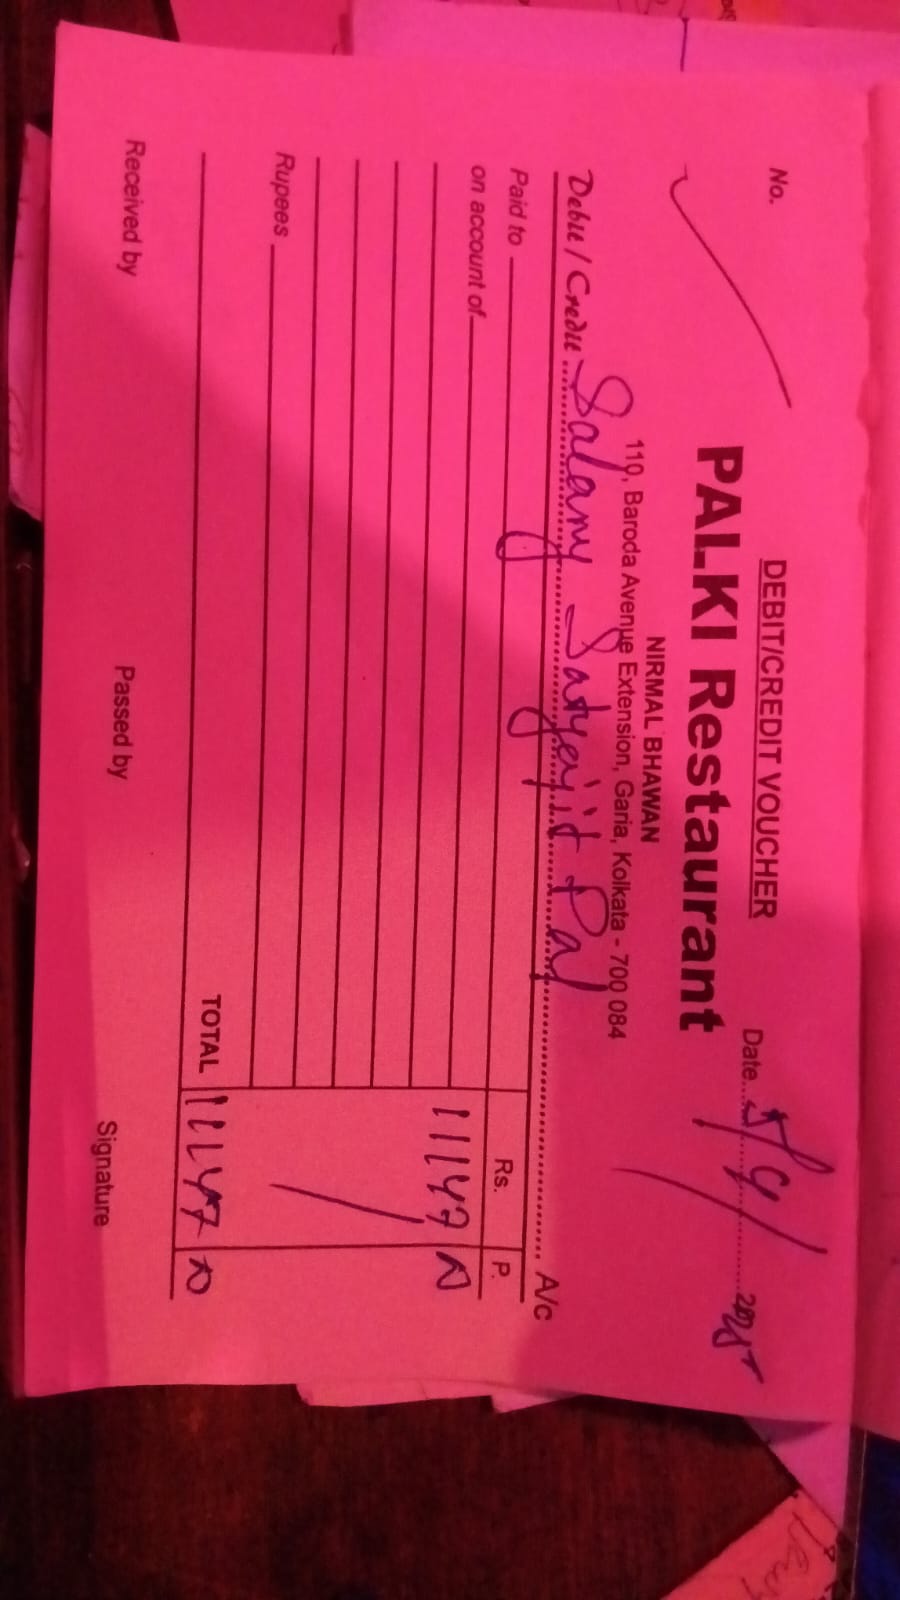 DEBIT/CREDIT VOUCHER
No. Date 5/4/ 2025
PALKI Restaurant
NIRMAL BHAWAN
110, Baroda Avenue Extension, Garia, Kolkata - 700 084
Debit / Credit Salary Satyajit Pal A/c
Paid to Rs. P.
on account of 11147
Rupees
TOTAL 11147
Received by Passed by Signature